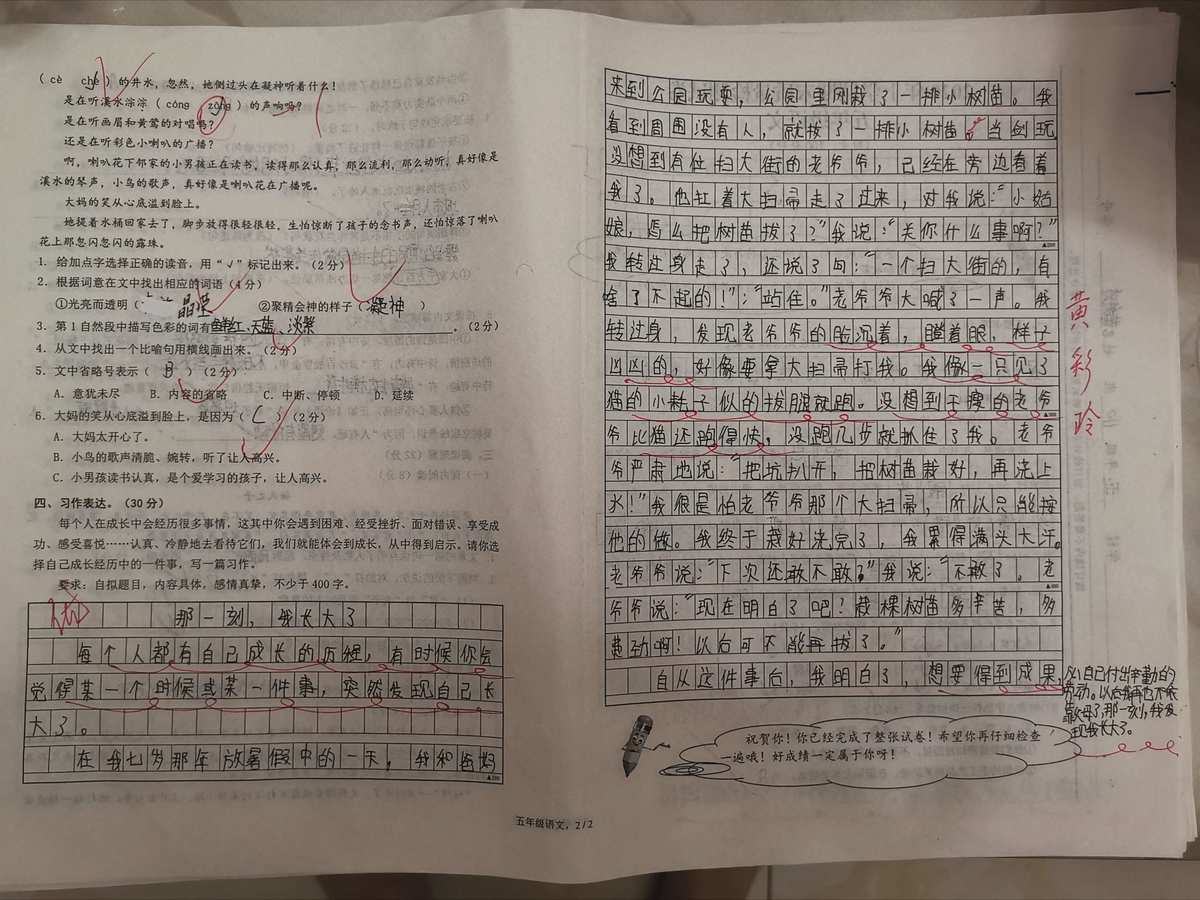 （cè chè）的井水，忽然，她侧过头在凝神听着什么！
是在听溪水淙淙（cóng zōng）的声响吗？
是在听画眉和黄莺的对唱吗？
还是在听彩色小喇叭的广播？
啊，喇叭花下邻家的小男孩正在读书，读得那么认真，那么流利，那么动听，真好像是
溪水的琴声，小鸟的歌声，真好像是喇叭花在广播呢。
大妈的笑从心底溢到脸上。
她提着水桶回家去了，脚步放得很轻很轻，生怕惊断了孩子的念书声，还怕惊落了喇叭
花上那忽闪忽闪的露珠。
1. 给加点字选择正确的读音，用“√”标记出来。（2分）
2. 根据词意在文中找出相应的词语（4分）
①光亮而透明（晶莹） ②聚精会神的样子（凝神）
3. 第1自然段中描写色彩的词有鱼鲜红、天蓝、淡紫。（2分）
4. 从文中找出一个比喻句用横线画出来。（2分）
5. 文中省略号表示（B）（2分）
A. 意犹未尽 B. 内容的省略 C. 中断、停顿 D. 延续
6. 大妈的笑从心底溢到脸上，是因为（C）（2分）
A. 大妈太开心了。
B. 小鸟的歌声清脆、婉转，听了让人高兴。
C. 小男孩读书认真，是个爱学习的孩子，让人高兴。
四、习作表达。（30分）
每个人在成长中会经历很多事情，这其中你会遇到困难、经受挫折、面对错误、享受成
功、感受喜悦……认真、冷静地去看待它们，我们就能体会到成长，从中得到启示。请你选
择自己成长经历中的一件事，写一篇习作。
要求：自拟题目，内容具体，感情真挚，不少于400字。
那一刻，我长大了
每个人都有自己成长的历程，有时候你会
觉得某一个时候或某一件事，突然发现自己长
大了。
在我七岁那年放暑假中的一天，我和爸妈
来到公园玩耍，公园里刚栽了一排小树苗。我
看到周围没有人，就拔了一排小树苗。当剑玩
没想到有位扫大街的老爷爷，已经在旁边看着
我了。他扛着大扫帚走了过来，对我说：“小姑
娘，焉么把树苗拔了？”我说：“关你什么事啊？”
我转过身走了，还说了句：“一个扫大街的，有
啥了不起的！”；“站住。”老爷爷大喊了一声。我
转过身，发现老爷爷的脸沉着，瞪着眼，样子
凶凶的，好像要拿大扫帚打我。我像一只见了
猫的小耗子似的拔腿就跑。没想到干瘦的老爷
爷比猫还跑得快，没跑几步就抓住了我。老爷
爷严肃地说：“把坑扒开，把树苗栽好，再浇上
水！”我很是怕老爷爷那个大扫帚，所以只能按
他的做。我终于栽好浇完了，我累得满头大汗。
老爷爷说：“下次还敢不敢？”我说：“不敢了。老
爷爷说：“现在明白了吧？栽棵树苗多辛苦，多
费劲啊！以后可不能再拔了。”
自从这件事后，我明白了，想要得到成果，
必自己付出辛勤的
劳动。以后我再也不依
靠父母了，那一刻，我发
现我长大了。
黄彩玲
祝贺你！你已经完成了整张试卷！希望你再仔细检查
一遍哦！好成绩一定属于你呀！
五年级语文，2/2